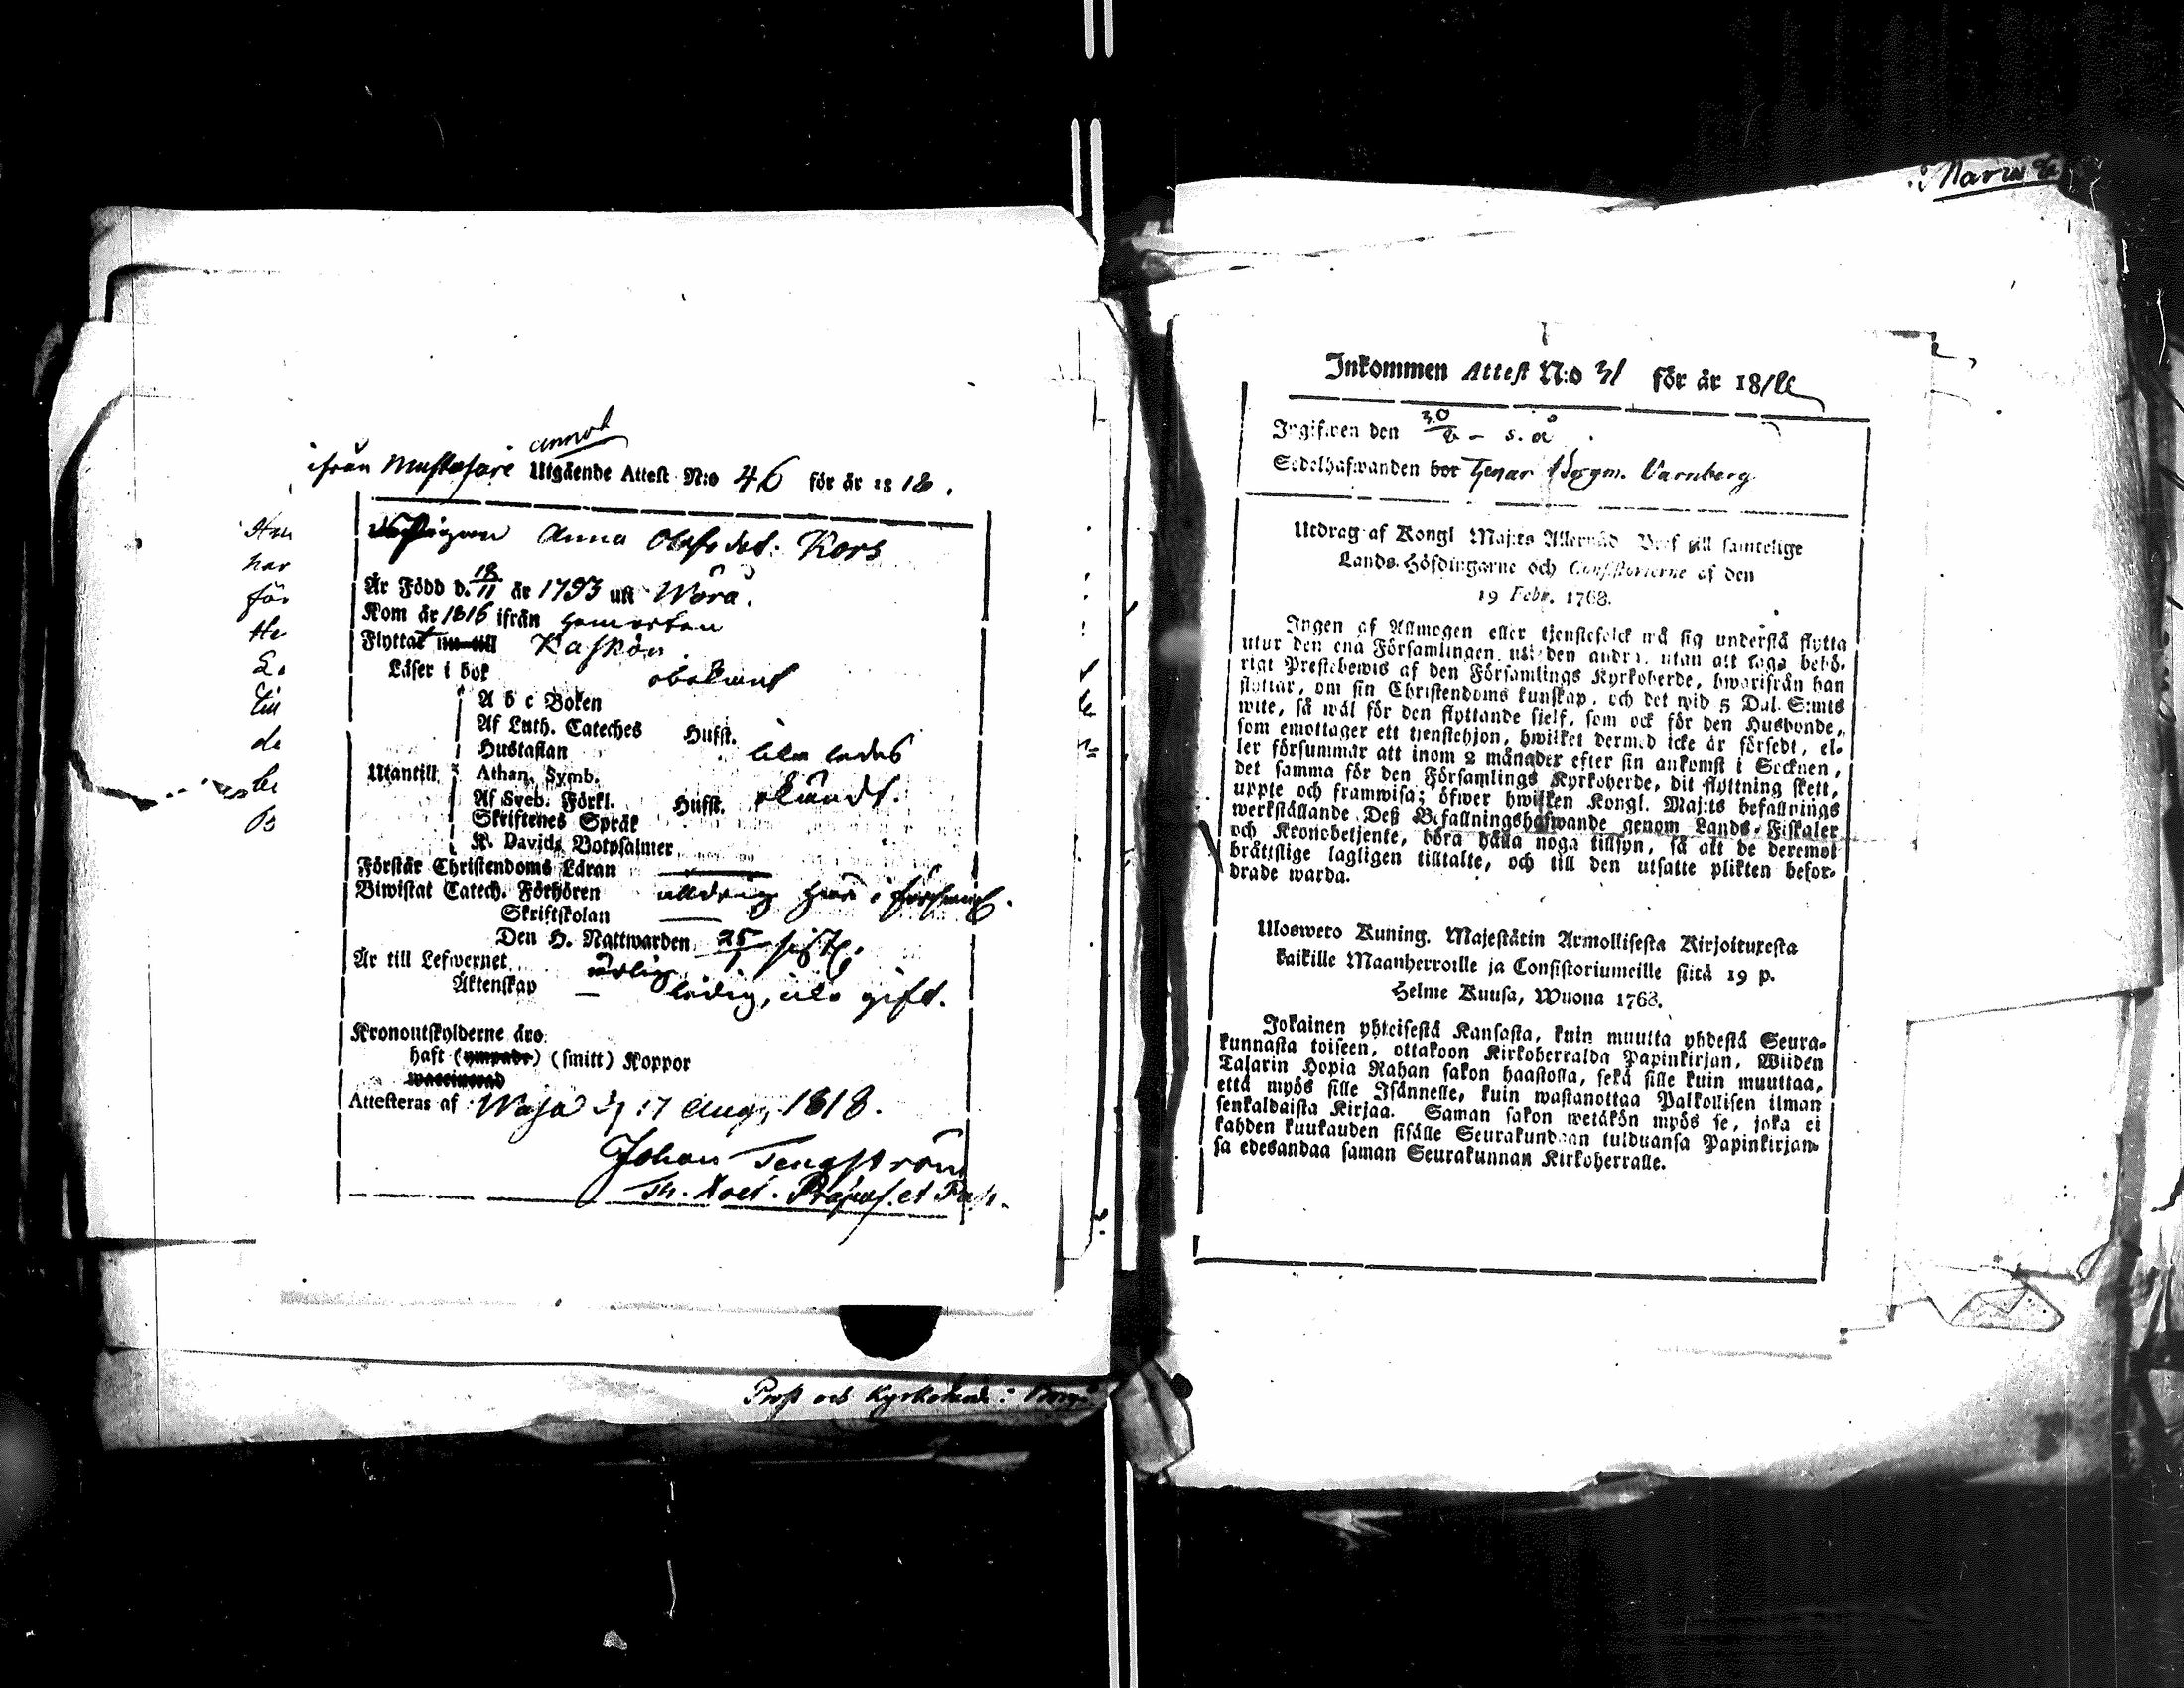 annot
ifrån Mustasare Utgående Attest N:o 46 för år 1818.
Pigan Anna Olofsdot: Kors
Är Född d. 18/11 år 1793 uti Wörå.
Kom år 1816 ifrån hemorten
Flyttat nu till Kaskön
Läser i bok obekant
A b c Boken
Af Luth. Cateches Hufst.
Hustaflan lika ledes
Utantill Athan. Symb.
Af Sveb. Förkl. Hufst. okändt.
Skriftenes Språk
K. Davids Botpsalmer
Förstår Christendoms Läran
Biwistat Catech. Förhören aldrig här i
Skriftskolan
Den H. Nattwarden 25/7 sistl.
Är till Lefwernet ärlig
Äktenskap ledig, icke gift.
Kronoutskylderne äro
haft (ympade) (smitt) Koppor
waccinerad
Attesteras af Wasa d. 17 Aug. 1818.
Johan Tengström
Th. Doct. Præpos. et Past.
Prost och Kyrkoherde i
Inkommen Attest N:o 31 för år 18
Ingifwen den 30 s. å.
Sedelhafwanden bor tjenar Varnberg
Utdrag af Kongl Maj:ts Allernåd Bref till samtelige
Lands-Höfdingarne och Consistorierne af den
19 Febr. 1768.
Ingen af Allmogen eller tjenstefolck må sig understå flytta
utur den ena Församlingen uti den andra, utan att taga behö-
rigt Prestebewis af den Församlings Kyrkoherde, hwarifrån han
flyttar, om sin Christendoms kunskap, och det wid 5 Dal. S:mts
wite, så wäl för den flyttande sielf, som ock för den Husbonde,
som emottager ett tjenstehjon, hwilket dermed icke är försedt, el-
ler försummar att inom 2 månader efter sin ankomst i Socknen,
det samma för den Församlings Kyrkoherde, dit flyttning skett,
uppte och framwisa; öfwer hwilken Kongl. Maj:ts befallnings
werkställande Deß Befallningshafwande genom Lands-Fiskaler
och Kronobetjente, böra hålla noga tillsyn, så att de deremot
bråttslige lagligen tilltalte, och till den utsatte plikten befor-
drade warda.
Uloswето Kuning. Majestätin Armollisesta Kirjoituxesta
kaikille Maanherroille ja Consistoriumeille siitä 19 p.
Helme Kuusa, Wuona 1768.
Jokainen yhteisestä Kansasta, kuin muutta yhdestä Seura-
kunnasta toiseen, ottakoon Kirkoherralda Papinkirjan, Wiiden
Talarin Hopia Rahan sakon haastolla, sekä sille kuin muuttaa,
että myös sille Isännelle, kuin wastanottaa Palkollisen ilman
senkaldaista Kirjaa. Saman sakon wetäkön myös se, joka ei
kahden kuukauden sisälle Seurakundaan tulduansa Papinkirjan-
sa edesandaa saman Seurakunnan Kirkoherralle.